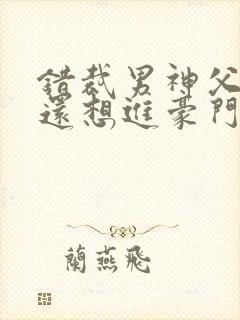 錯裁男神父
還想進豪門
蘭燕飛